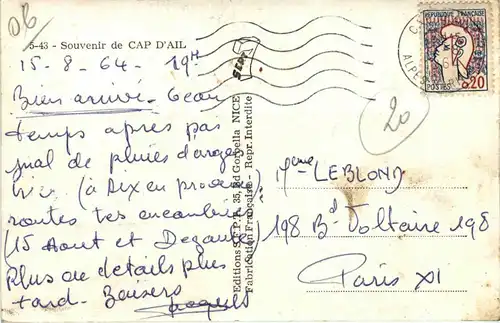 06
5-43 - Souvenir de CAP D'AIL
15-8-64- 19H
Bien arrivé - beau
temps après pas
mal de pluies d'orages
hier (à Aix en provence
routes très encombrées
(15 Aout et
Plus de détails plus
tard - Baisers
Jacques
Editions S.E.P.T. 35, Bd Gorbella NICE
Fabrication Française - Repr. Interdite
REPUBLIQUE FRANÇAISE
POSTES 0,20
ALPES
20
Mme LEBLOND
198 Bd Voltaire 198
Paris XI